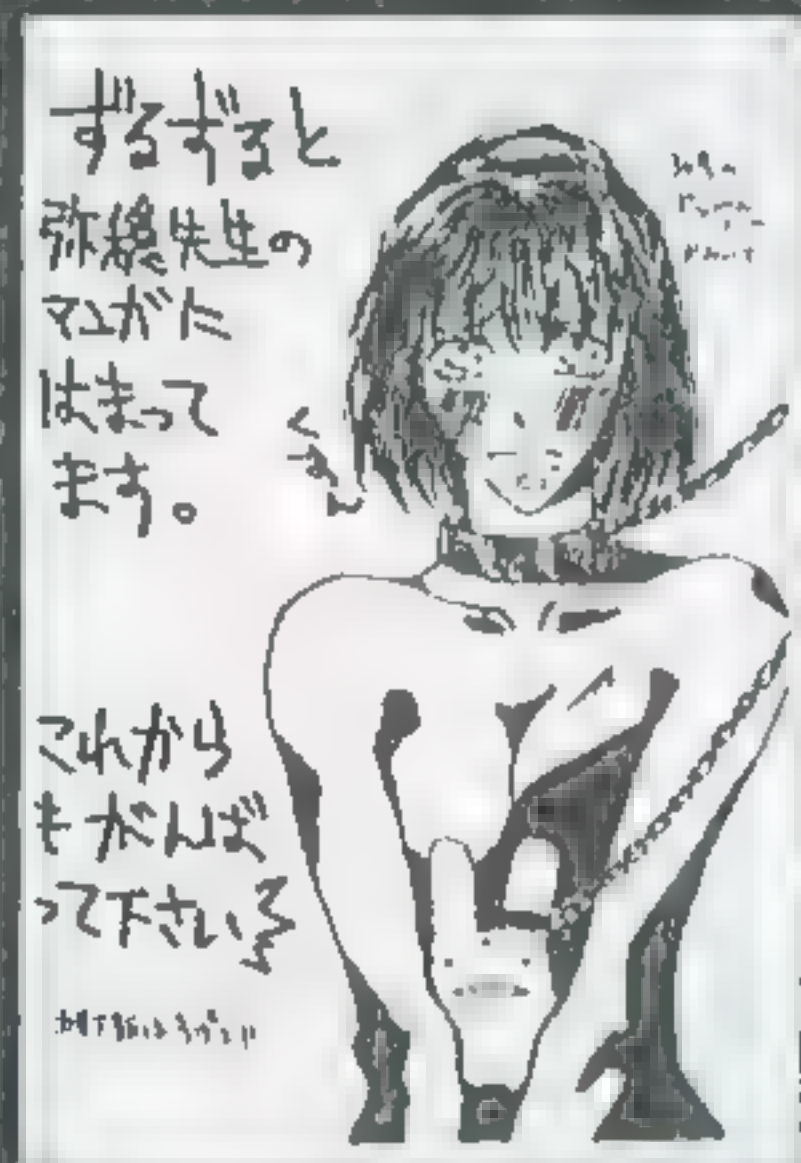 ずるずると
弥穂先生の
マンガに
はまって
ます。
くすん
これから
も がんば
って下さい